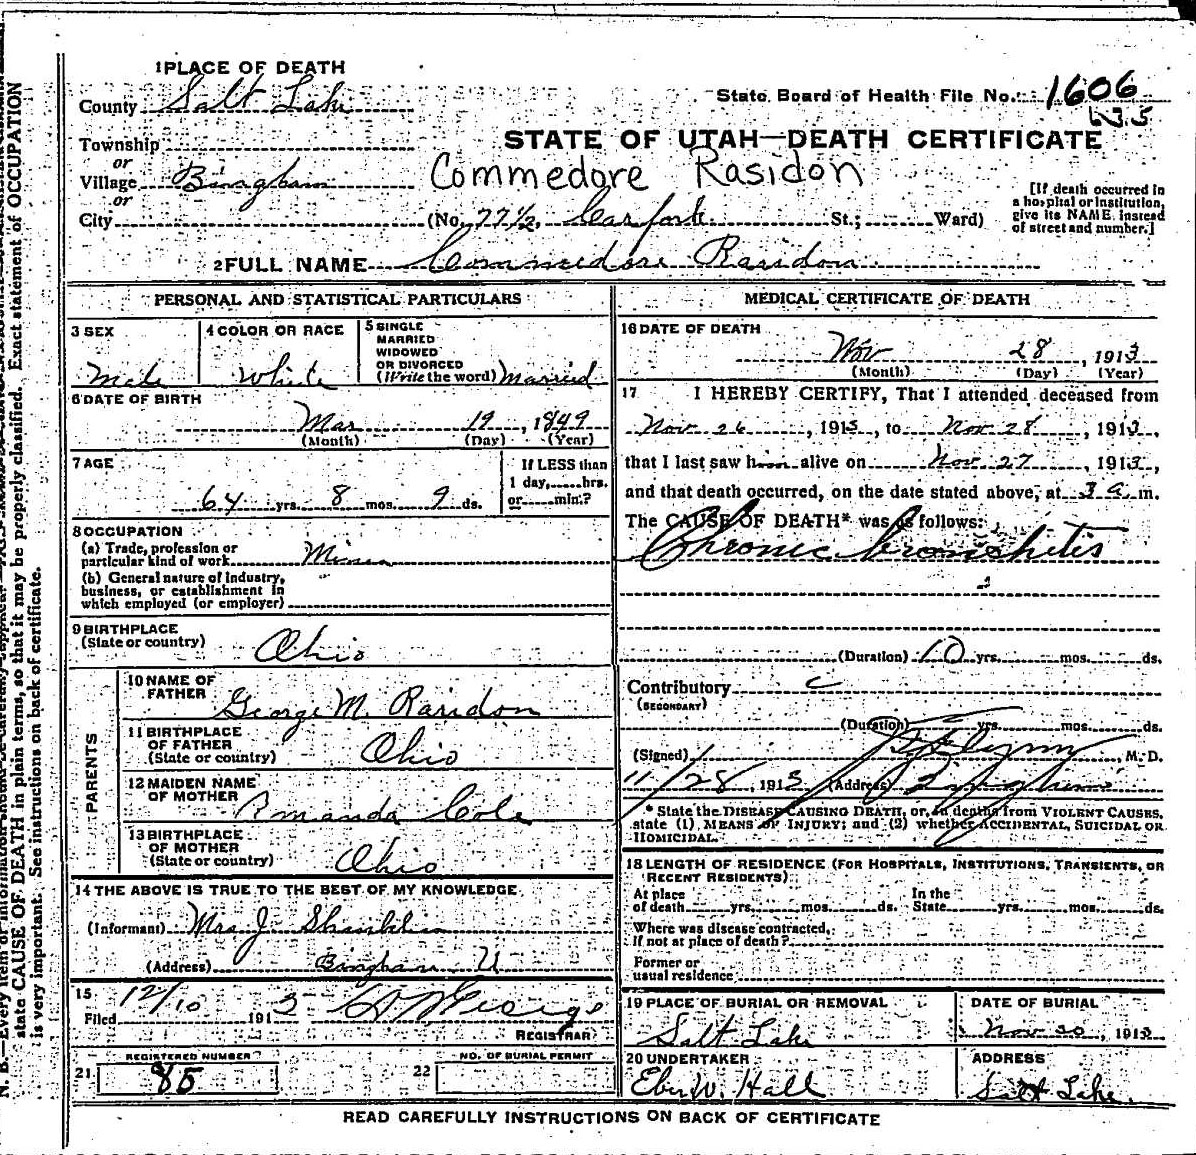 1 PLACE OF DEATH
County Salt Lake
State Board of Health File No. 1606
635
Township
or
Village Bingham
or
City (No. 77½, Carfork St.; Ward)
STATE OF UTAH—DEATH CERTIFICATE
Commedore Rasidon
[If death occurred in
a hospital or institution,
give its NAME instead
of street and number.]
2 FULL NAME Commedore Rasidon
PERSONAL AND STATISTICAL PARTICULARS
3 SEX
Male
4 COLOR OR RACE
White
5 SINGLE
MARRIED
WIDOWED
OR DIVORCED
(Write the word) Married
6 DATE OF BIRTH
Mar 19, 1849
(Month) (Day) (Year)
7 AGE
64 yrs. 8 mos. 9 ds.
If LESS than
1 day, hrs.
or min.?
8 OCCUPATION
(a) Trade, profession or
particular kind of work Miner
(b) General nature of industry,
business, or establishment in
which employed (or employer)
9 BIRTHPLACE
(State or country) Ohio
PARENTS
10 NAME OF
FATHER George M. Rasidon
11 BIRTHPLACE
OF FATHER
(State or country) Ohio
12 MAIDEN NAME
OF MOTHER Amanda Cole
13 BIRTHPLACE
OF MOTHER
(State or country) Ohio
14 THE ABOVE IS TRUE TO THE BEST OF MY KNOWLEDGE
(Informant) Mrs J. Shanklin
(Address) Bingham U
15
Filed 12/10 1913
REGISTRAR
REGISTERED NUMBER
21 85
NO. OF BURIAL PERMIT
22
MEDICAL CERTIFICATE OF DEATH
16 DATE OF DEATH
Nov 28, 1913
(Month) (Day) (Year)
17 I HEREBY CERTIFY, That I attended deceased from
Nov 26, 1913, to Nov 28, 1913,
that I last saw him alive on Nov 27, 1913,
and that death occurred, on the date stated above, at 3 a m.
The CAUSE OF DEATH* was as follows:
Chronic bronchitis
(Duration) 10 yrs. mos. ds.
Contributory
(SECONDARY)
(Duration) yrs. mos. ds.
(Signed) Flynn, M. D.
11/28, 1913 (Address) Bingham
* State the DISEASE CAUSING DEATH, or, in deaths from VIOLENT CAUSES,
state (1) MEANS OF INJURY; and (2) whether ACCIDENTAL, SUICIDAL OR
HOMICIDAL.
18 LENGTH OF RESIDENCE (FOR HOSPITALS, INSTITUTIONS, TRANSIENTS, OR
RECENT RESIDENTS)
At place
of death yrs. mos. ds.
In the
State yrs. mos. ds.
Where was disease contracted,
If not at place of death?
Former or
usual residence
19 PLACE OF BURIAL OR REMOVAL
Salt Lake
DATE OF BURIAL
Nov 30, 1913
20 UNDERTAKER
Eber W. Hall
ADDRESS
Salt Lake
READ CAREFULLY INSTRUCTIONS ON BACK OF CERTIFICATE
state CAUSE OF DEATH in plain terms, so that it may be properly classified. Exact statement of OCCUPATION
is very important. See instructions on back of certificate.